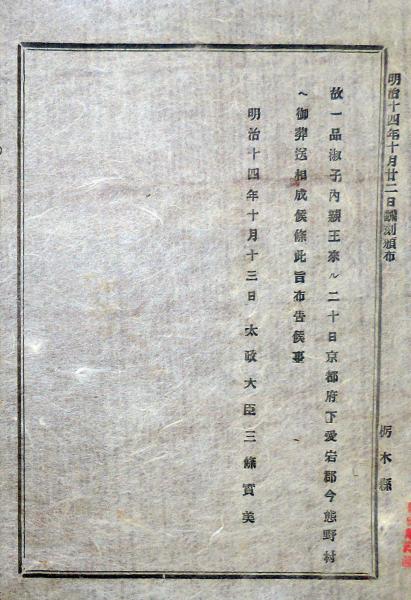 明治十四年十月廿二日飜刻頒布
栃木縣
故一品淑子內親王來ル二十日京都府下愛宕郡今熊野村
ヘ御葬送相成候條此旨布告候事
明治十四年十月十三日 太政大臣三條實美